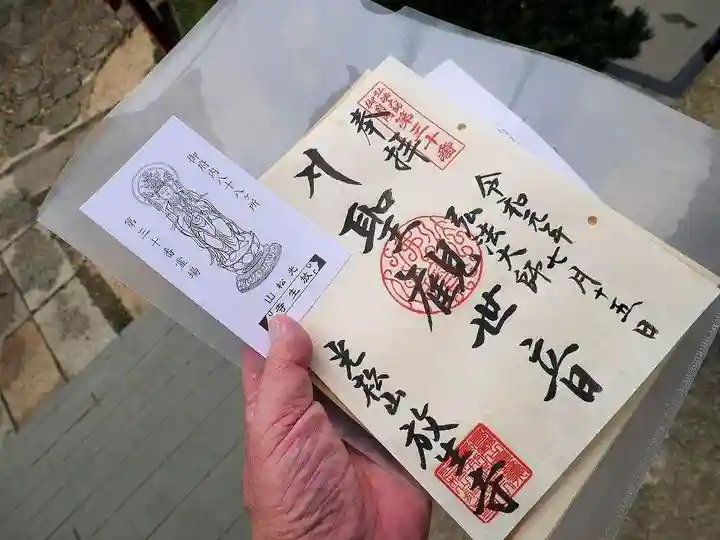 御府内八十八ヶ所
第三十番霊場
光松山
放生寺
弘法大師
御府内
第三十番
奉拝
令和元年七月十五日
弘法大師
聖観世音
光松山放生寺